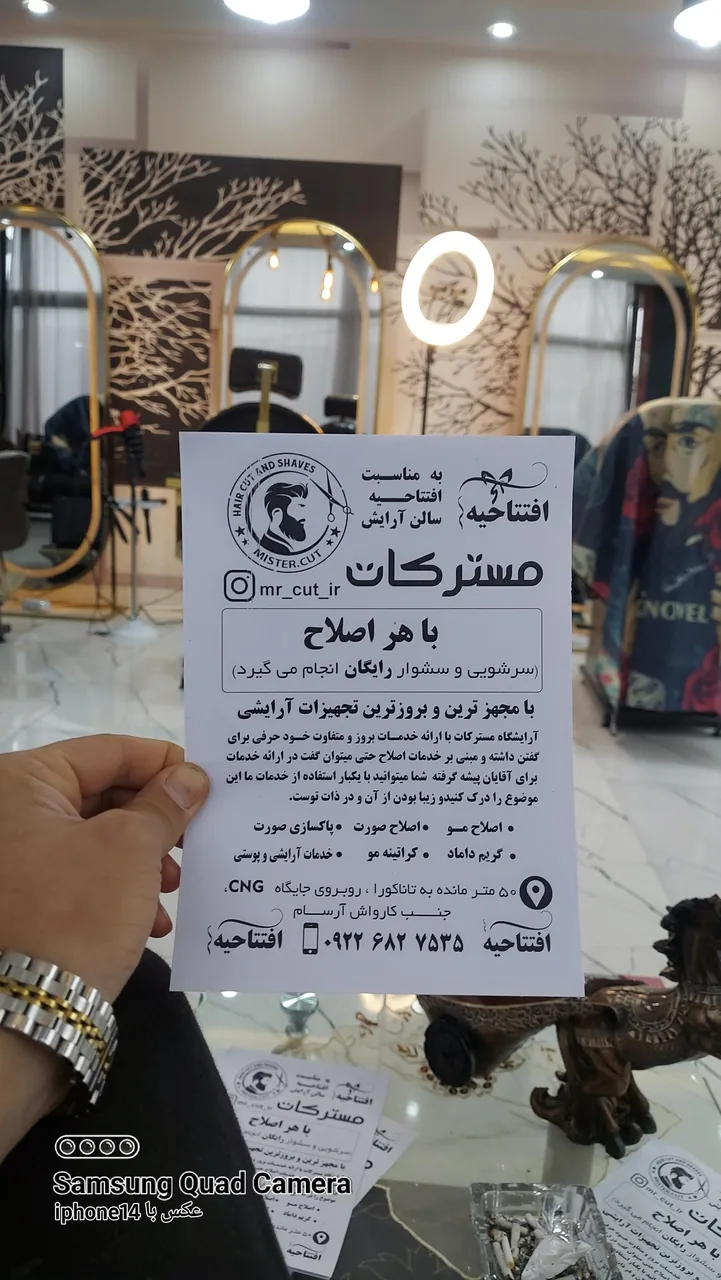 HAIR CUT AND SHAVES
MISTER.CUT
به مناسبت
افتتاحیه
سالن آرایش
افتتاحیه
مسترکات
mr_cut_ir
با هر اصلاح
(سرشویی و سشوار رایگان انجام می گیرد)
با مجهز ترین و بروزترین تجهیزات آرایشی
آرایشگاه مسترکات با ارائه خدمات بروز و متفاوت خود حرفی برای
گفتن داشته و مبنی بر خدمات اصلاح حتی میتوان گفت در ارائه خدمات
برای آقایان پیشه گرفته شما میتوانید با یکبار استفاده از خدمات ما این
موضوع را درک کنیدو زیبا بودن از آن و در ذات توست.
• اصلاح مو • اصلاح صورت • پاکسازی صورت
• گریم داماد • کراتینه مو • خدمات آرایشی و پوستی
۵۰ متر مانده به تاناکورا ، روبروی جایگاه CNG،
جنب کارواش آرسام
افتتاحیه ۰۹۲۲ ۶۸۲ ۷۵۳۵ افتتاحیه
NOVEL
به مناسبت
افتتاحیه
سالن آرایش
افتتاحیه
مسترکات
mr_cut_ir
با هر اصلاح
سرشویی و سشوار رایگان انجام
با مجهز ترین و بروزترین
افتتاحیه
mr_cut_ir
با هر اصلاح
Samsung Quad Camera
عکس با iphone14